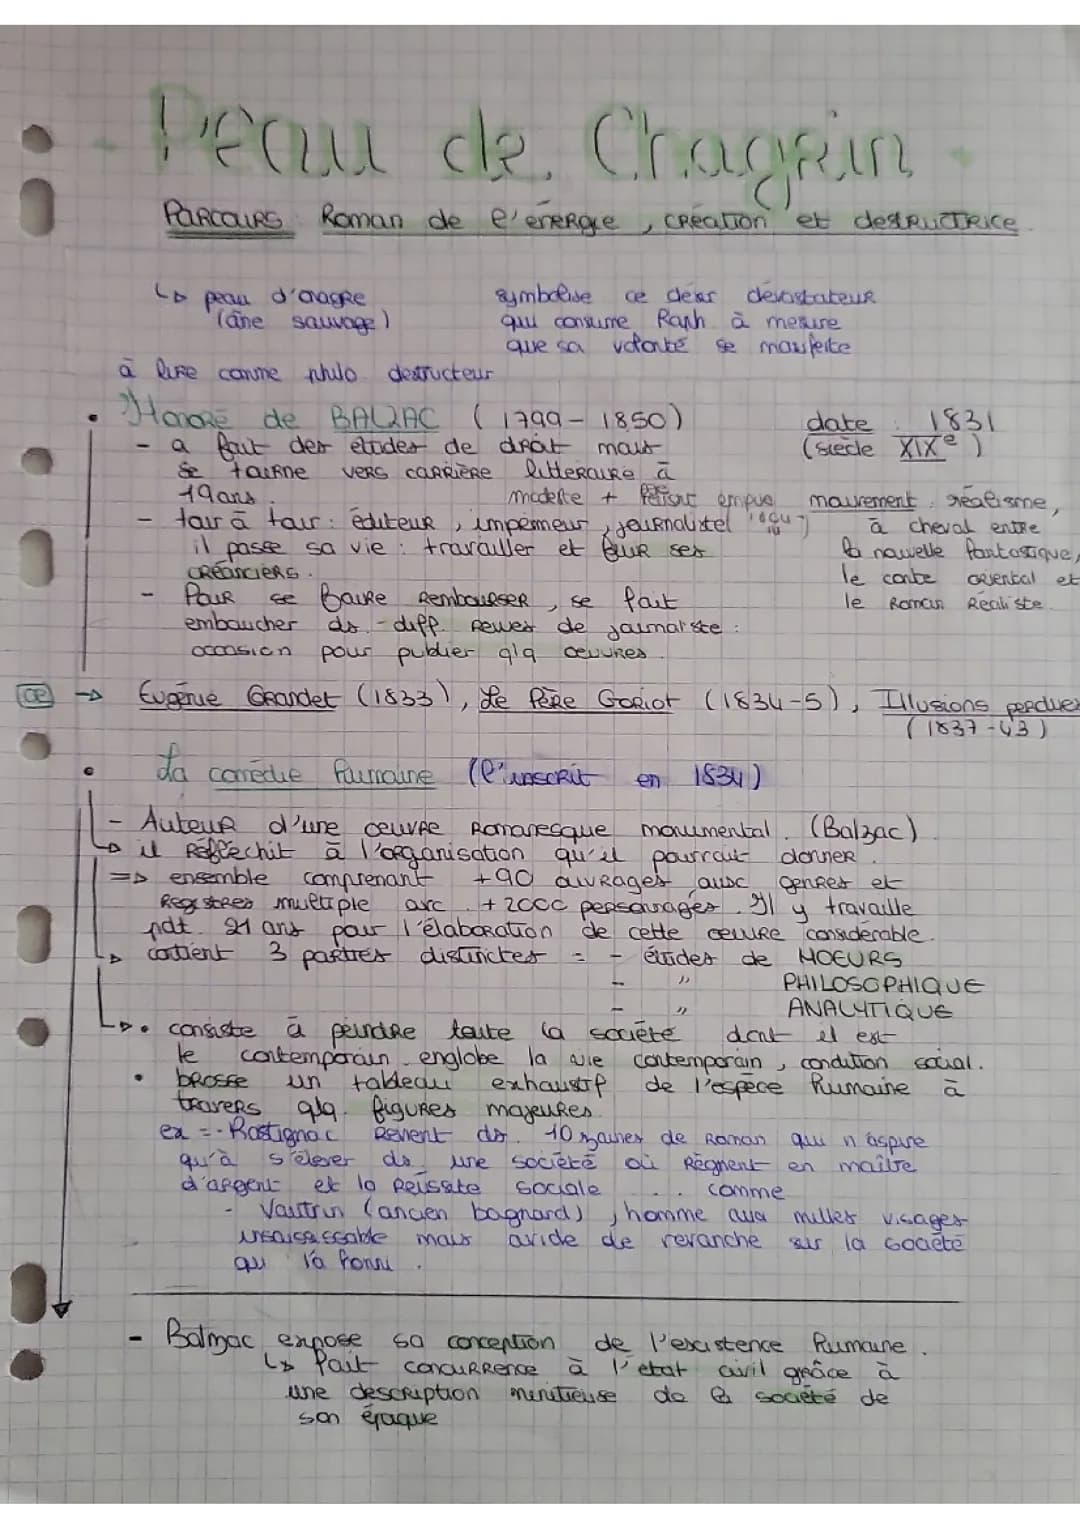 - Peau de Chagrin -
PARCOURS Roman de l'énergie, création et destructrice
↳ peau d'onagre
(âne sauvage)
symbolise ce désir dévastateur
qui consume Raph à mesure
que sa volonté se manifeste
à lire comme philo destructeur
• Honoré de BALZAC (1799-1850)
- a fait des études de droit mais
se tourne vers carrière littéraire à
19 ans.
modeste +
- tour à tour : éditeur, imprimeur, journaliste
il passe sa vie : travailler et fuir ses
créanciers.
- Pour se faire rembourser, se fait
embaucher ds diff. revues de journaliste :
occasion pour publier qlq œuvres.
date : 1831
(siècle XIXe)
mouvement : réalisme,
à cheval entre
la nouvelle fantastique,
le conte oriental et
le Roman Réaliste.
→ Eugénie Grandet (1833), Le Père Goriot (1834-5), Illusions perdues
(1837-43)
• La comédie humaine (l'inscrit en 1834)
- Auteur d'une œuvre romanesque monumental. (Balzac)
↳ il réfléchit à l'organisation qu'il pourrait donner.
=> ensemble comprenant +90 ouvrages ausc genres et
Registres multiple avc +2000 personnages. Il y travaille
pdt 21 ans pour l'élaboration de cette œuvre considérable.
↳ contient 3 parties distinctes = - études de MOEURS
- " PHILOSOPHIQUE
- " ANALYTIQUE
↳ • consiste à peindre toute la société dont il est
le contemporain. englobe la vie contemporain, condition social.
• brosse un tableau exhaustif de l'espèce humaine à
travers qlq. figures majeures.
ex = - Rastignac revient ds. 10zaines de Roman qui n'aspire
qu'à s'élever ds une société où règnent en maître
d'argent et la réussite sociale ... comme
- Vautrin (ancien bagnard), homme aux milles visages
insaisissable mais avide de revanche sur la société
qui l'a banni.
- Balzac expose sa conception de l'existence humaine.
↳ fait concurrence à l'état civil grâce à
une description minutieuse de la société de
son époque